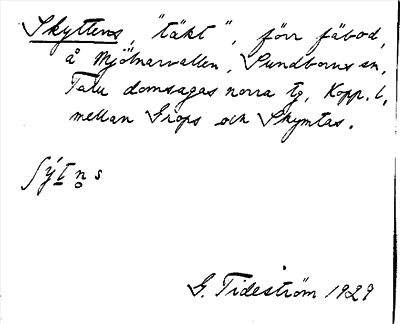 Skyttens, "täkt", förr fäbod,
å Mjölnarvallen, Sundborns sn,
Falu domsagas norra tg, Kopp. l.
mellan Grops och Skymtas.
ʃýtn̥s
G. Tideström 1929